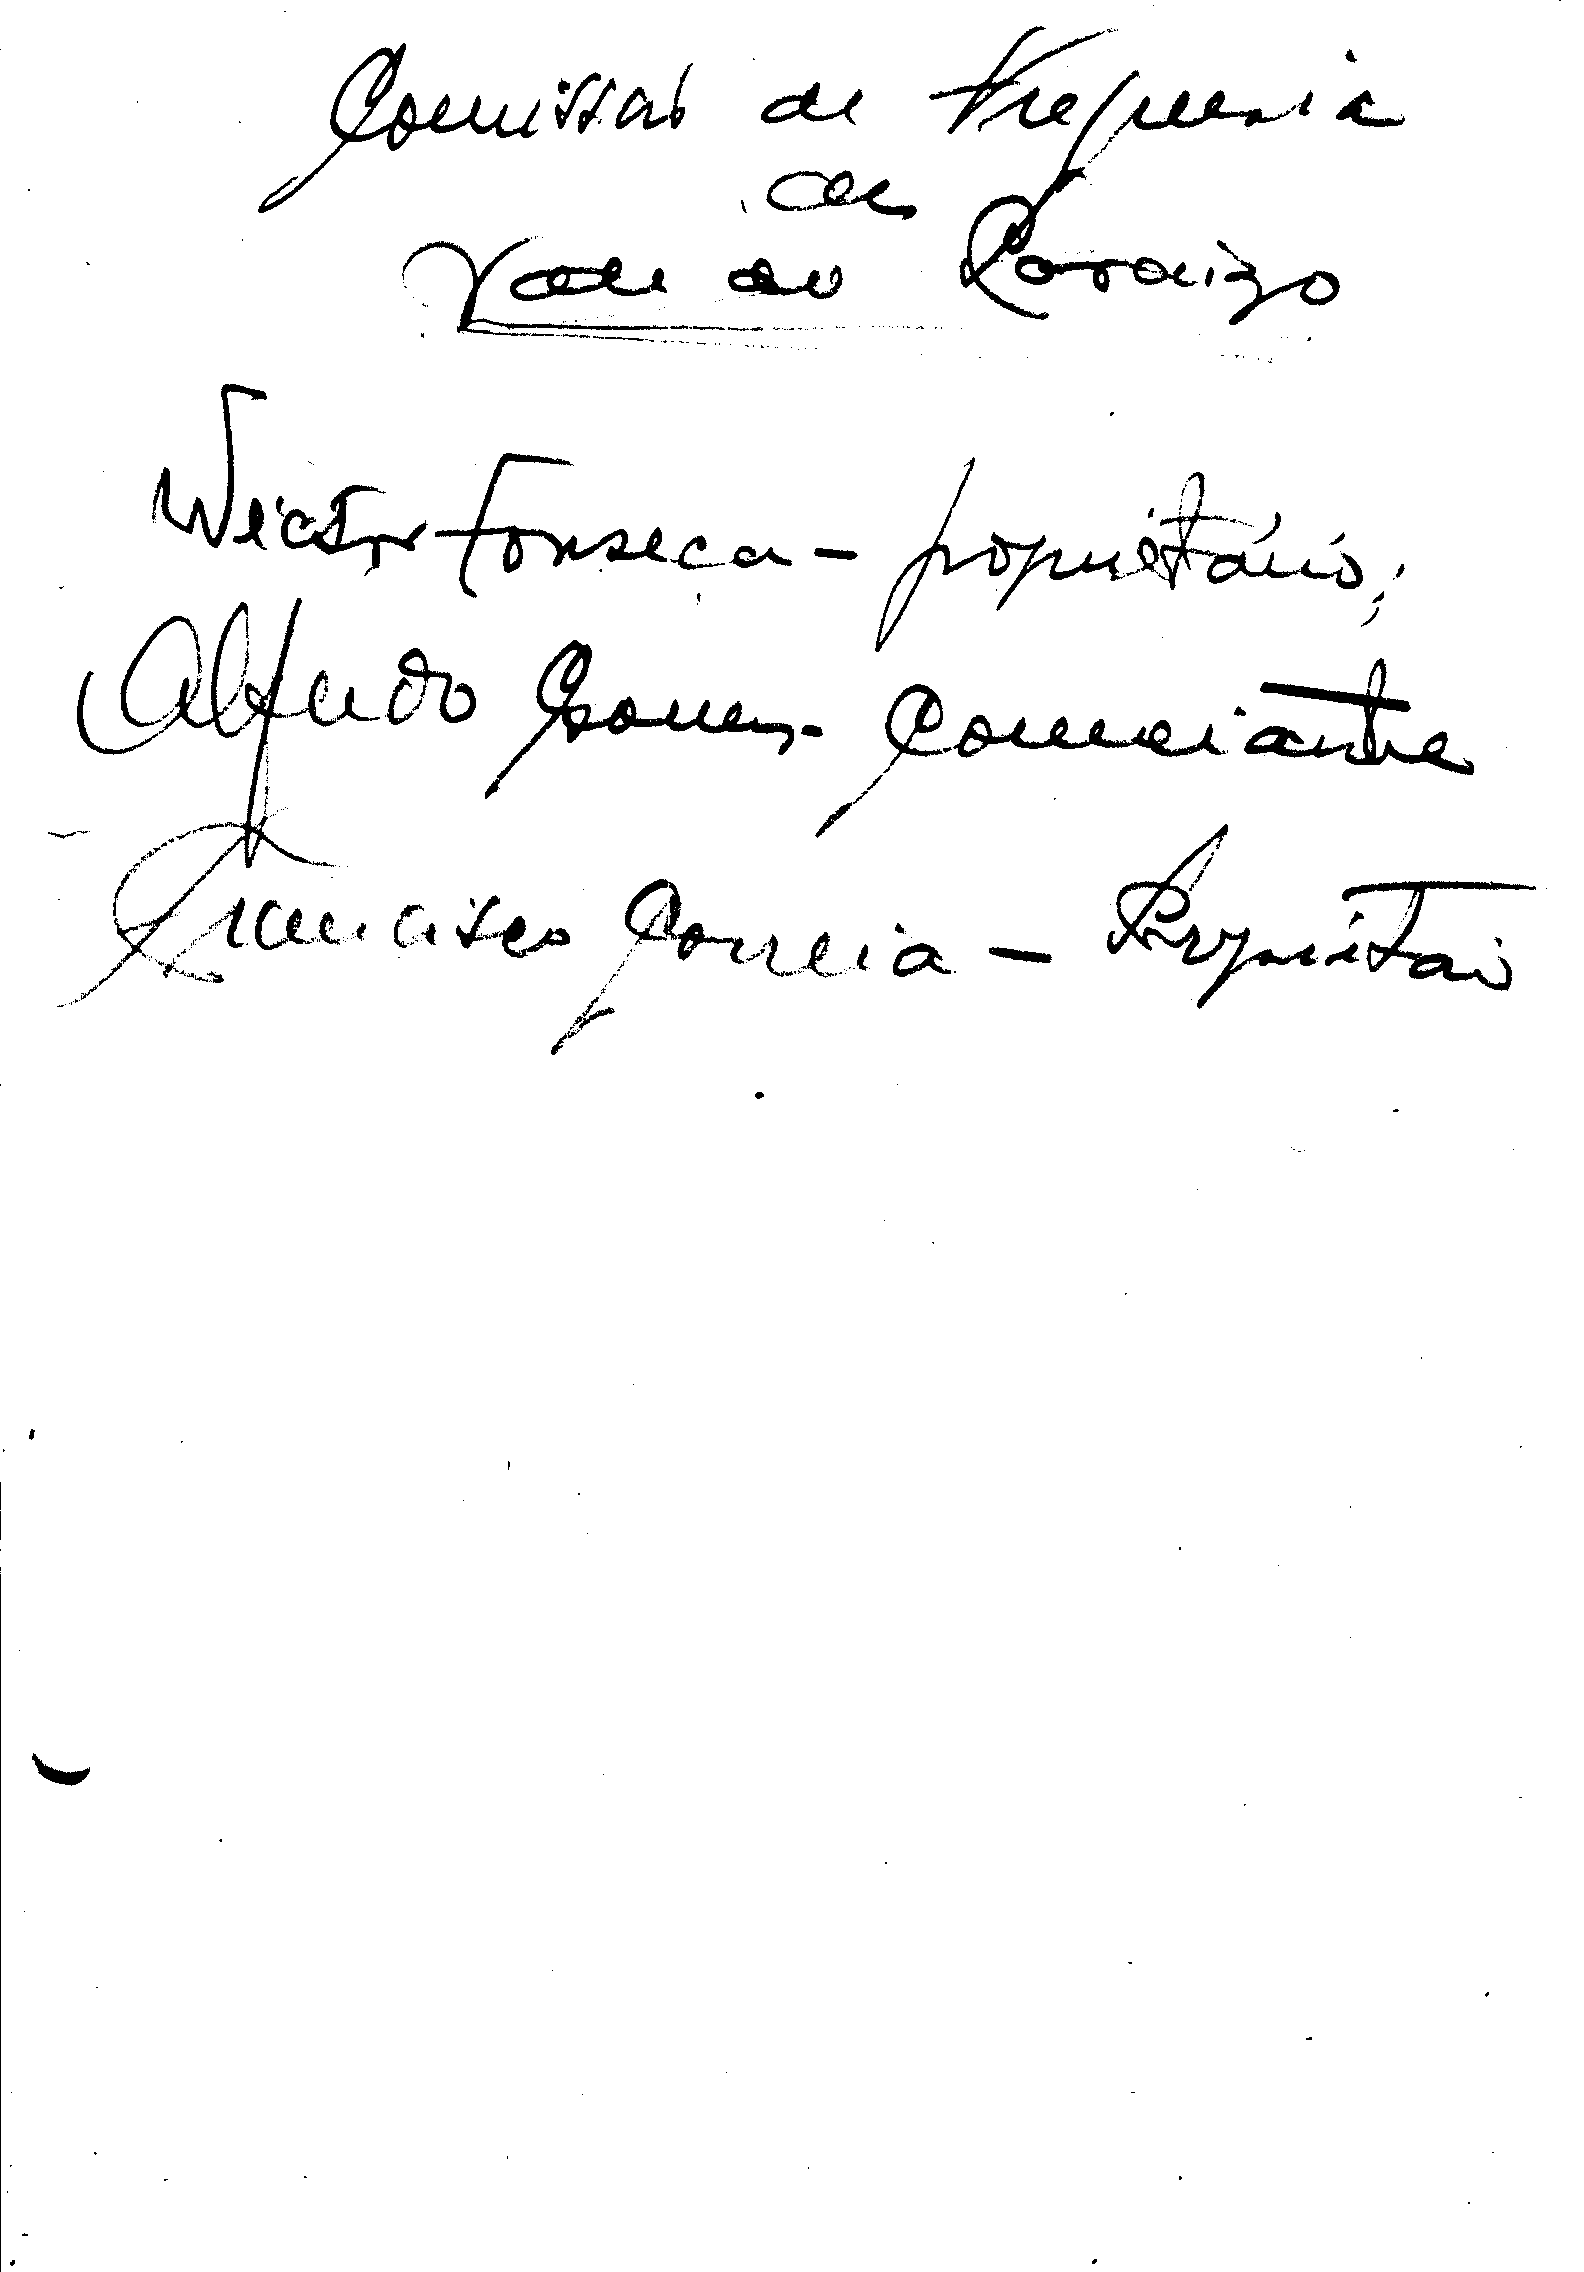 Comissão de Freguesia
de
Vale do Paraizo
Victor Fonseca – proprietário;
Alfredo Gomes – Comerciante
Francisco Correia – Propritário